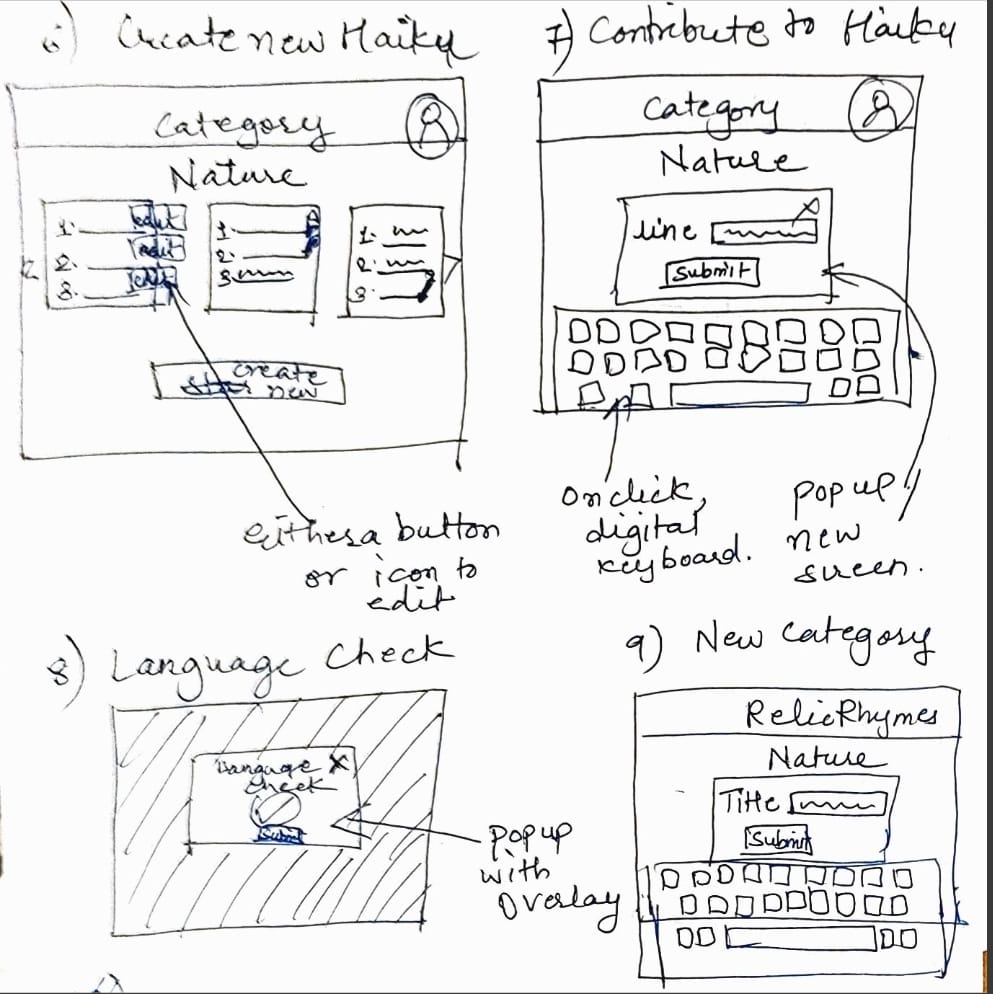 6) Create new Haiku
Category
Nature
1. edit
2. edit
3. edit
1.
2.
3.
1.
2.
3.
create
new
either a button
or icon to
edit
7) Contribute to Haiku
Category
Nature
X
Line
Submit
On click,
digital
keyboard.
Pop up
new
screen.
8) Language Check
Language X
Check
Submit
Pop up
with
Overlay
9) New Category
RelicRhymes
Nature
Title
Submit